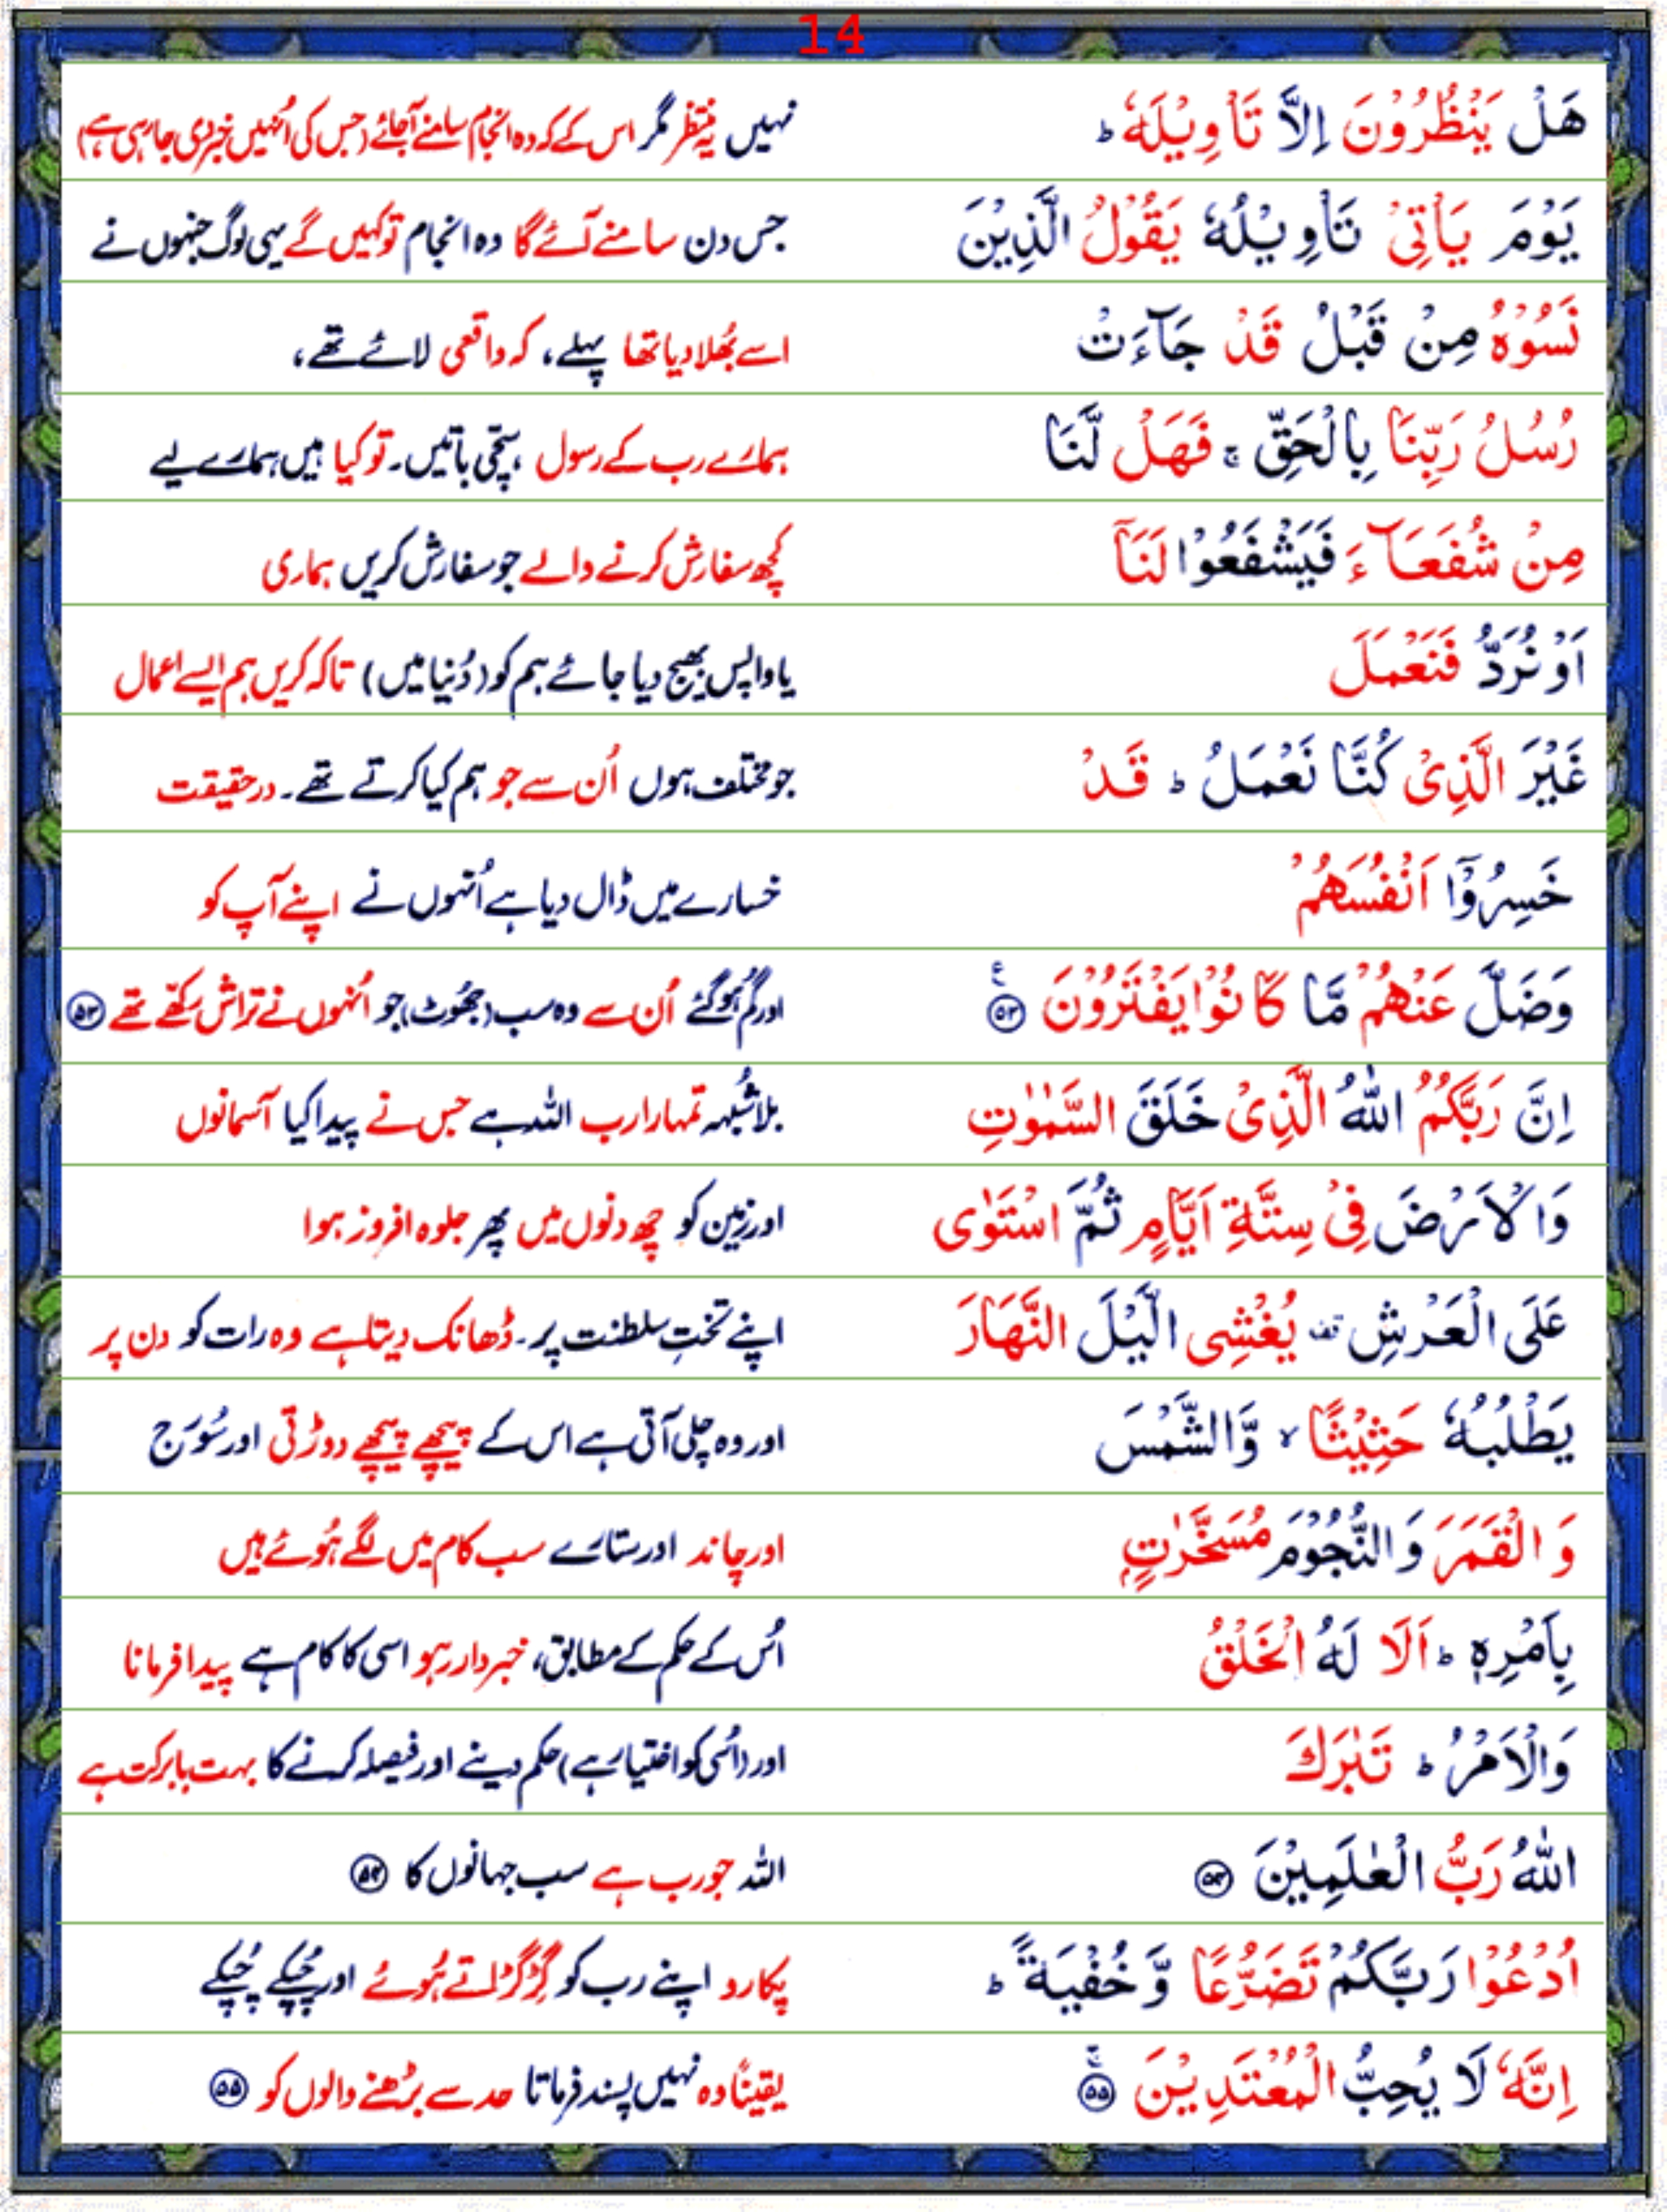 14
هَلْ يَنْظُرُوْنَ اِلَّا تَاْوِيْلَهٗ ؕ نہیں یہ منتظر مگر اس کے کہ وہ انجام سامنے آجائے (جس کی اُنہیں خبر دی جارہی ہے)
يَوْمَ يَاْتِىْ تَاْوِيْلُهٗ يَقُوْلُ الَّذِيْنَ جس دن سامنے آئے گا وہ انجام تو کہیں گے یہی لوگ جنہوں نے
نَسُوْهُ مِنْ قَبْلُ قَدْ جَآءَتْ اسے بُھلا دیا تھا پہلے، کہ واقعی لائے تھے،
رُسُلُ رَبِّنَا بِالْحَقِّ ۚ فَهَلْ لَّنَا ہمارے رب کے رسول، سچّی باتیں۔ تو کیا ہیں ہمارے لیے
مِنْ شُفَعَآءَ فَيَشْفَعُوْا لَنَاۤ کچھ سفارش کرنے والے جو سفارش کریں ہماری
اَوْ نُرَدُّ فَنَعْمَلَ یا واپس بھیج دیا جائے ہم کو (دُنیا میں) تاکہ کریں ہم ایسے اعمال
غَيْرَ الَّذِىْ كُنَّا نَعْمَلُ ؕ قَدْ جو مختلف ہوں اُن سے جو ہم کیا کرتے تھے۔ درحقیقت
خَسِرُوْۤا اَنْفُسَهُمْ خسارے میں ڈال دیا ہے اُنہوں نے اپنے آپ کو
وَضَلَّ عَنْهُمْ مَّا كَانُوْا يَفْتَرُوْنَ ۵۳ ع اور گم ہوگئے اُن سے وہ سب (جھُوٹ) جو اُنہوں نے تراش رکھے تھے ۵۳
اِنَّ رَبَّكُمُ اللّٰهُ الَّذِىْ خَلَقَ السَّمٰوٰتِ بلاشُبہہ تمہارا رب اللہ ہے جس نے پیدا کیا آسمانوں
وَالْاَرْضَ فِىْ سِتَّةِ اَيَّامٍ ثُمَّ اسْتَوٰى اور زمین کو چھ دنوں میں پھر جلوہ افروز ہوا
عَلَى الْعَرْشِ ۫ يُغْشِى الَّيْلَ النَّهَارَ اپنے تختِ سلطنت پر۔ ڈھانک دیتا ہے وہ رات کو دن پر
يَطْلُبُهٗ حَثِيْثًا ۙ وَّالشَّمْسَ اور وہ چلی آتی ہے اس کے پیچھے پیچھے دوڑتی اور سُورج
وَ الْقَمَرَ وَ النُّجُوْمَ مُسَخَّرٰتٍۭ اور چاند اور ستارے سب کام میں لگے ہُوئے ہیں
بِاَمْرِهٖ ؕ اَلَا لَهُ الْخَلْقُ اُس کے حکم کے مطابق، خبردار رہو اسی کا کام ہے پیدا فرمانا
وَالْاَمْرُ ؕ تَبٰرَكَ اور (اُسی کو اختیار ہے) حکم دینے اور فیصلہ کرنے کا بہت بابرکت ہے
اللّٰهُ رَبُّ الْعٰلَمِيْنَ ۵۴ اللہ جو رب ہے سب جہانوں کا ۵۴
اُدْعُوْا رَبَّكُمْ تَضَرُّعًا وَّخُفْيَةً ؕ پکارو اپنے رب کو گِڑگِڑاتے ہُوئے اور چُپکے چُپکے
اِنَّهٗ لَا يُحِبُّ الْمُعْتَدِيْنَ ۵۵ یقیناً وہ نہیں پسند فرماتا حد سے بڑھنے والوں کو ۵۵